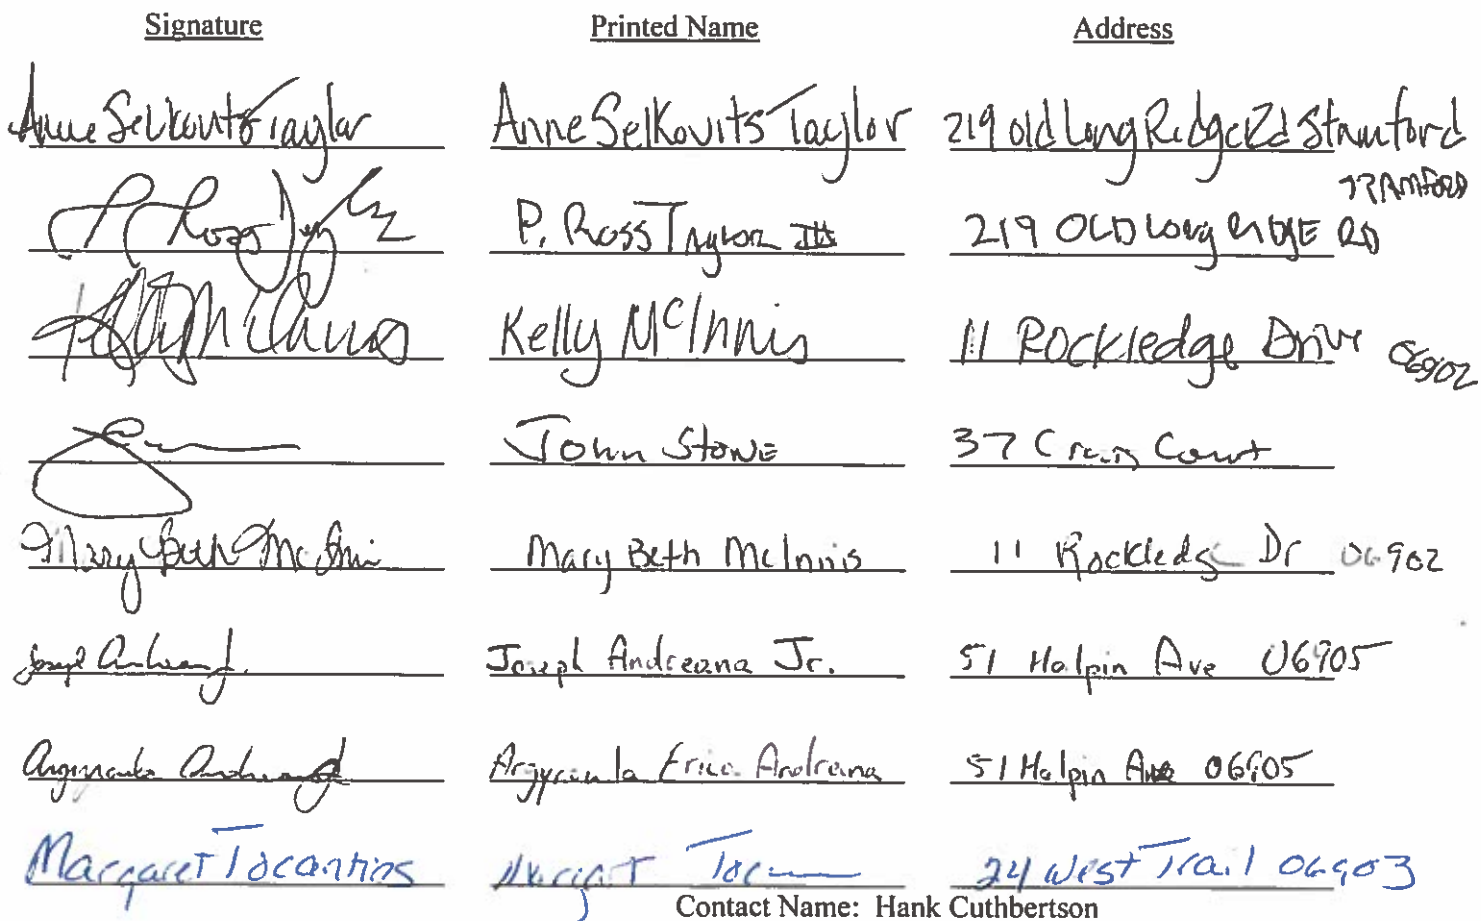 Signature Printed Name Address
Anne Selkovits Taylor Anne Selkovits Taylor 219 old Long Ridge Rd Stamford
P Ross P. Ross Taylor III 219 OLD Long RIDGE RD STAMFORD
Kelly McInnis Kelly McInnis 11 Rockledge Drive 06902
John Stowe 37 Craig Court
Mary Beth McInnis Mary Beth McInnis 11 Rockledge Dr 06902
Joseph Andreana Jr. Joseph Andreana Jr. 51 Halpin Ave 06905
Argyroula Andreana Argyroula Erica Andreana 51 Halpin Ave 06905
Margaret Tocantins 24 West Trail 06903
Contact Name: Hank Cuthbertson